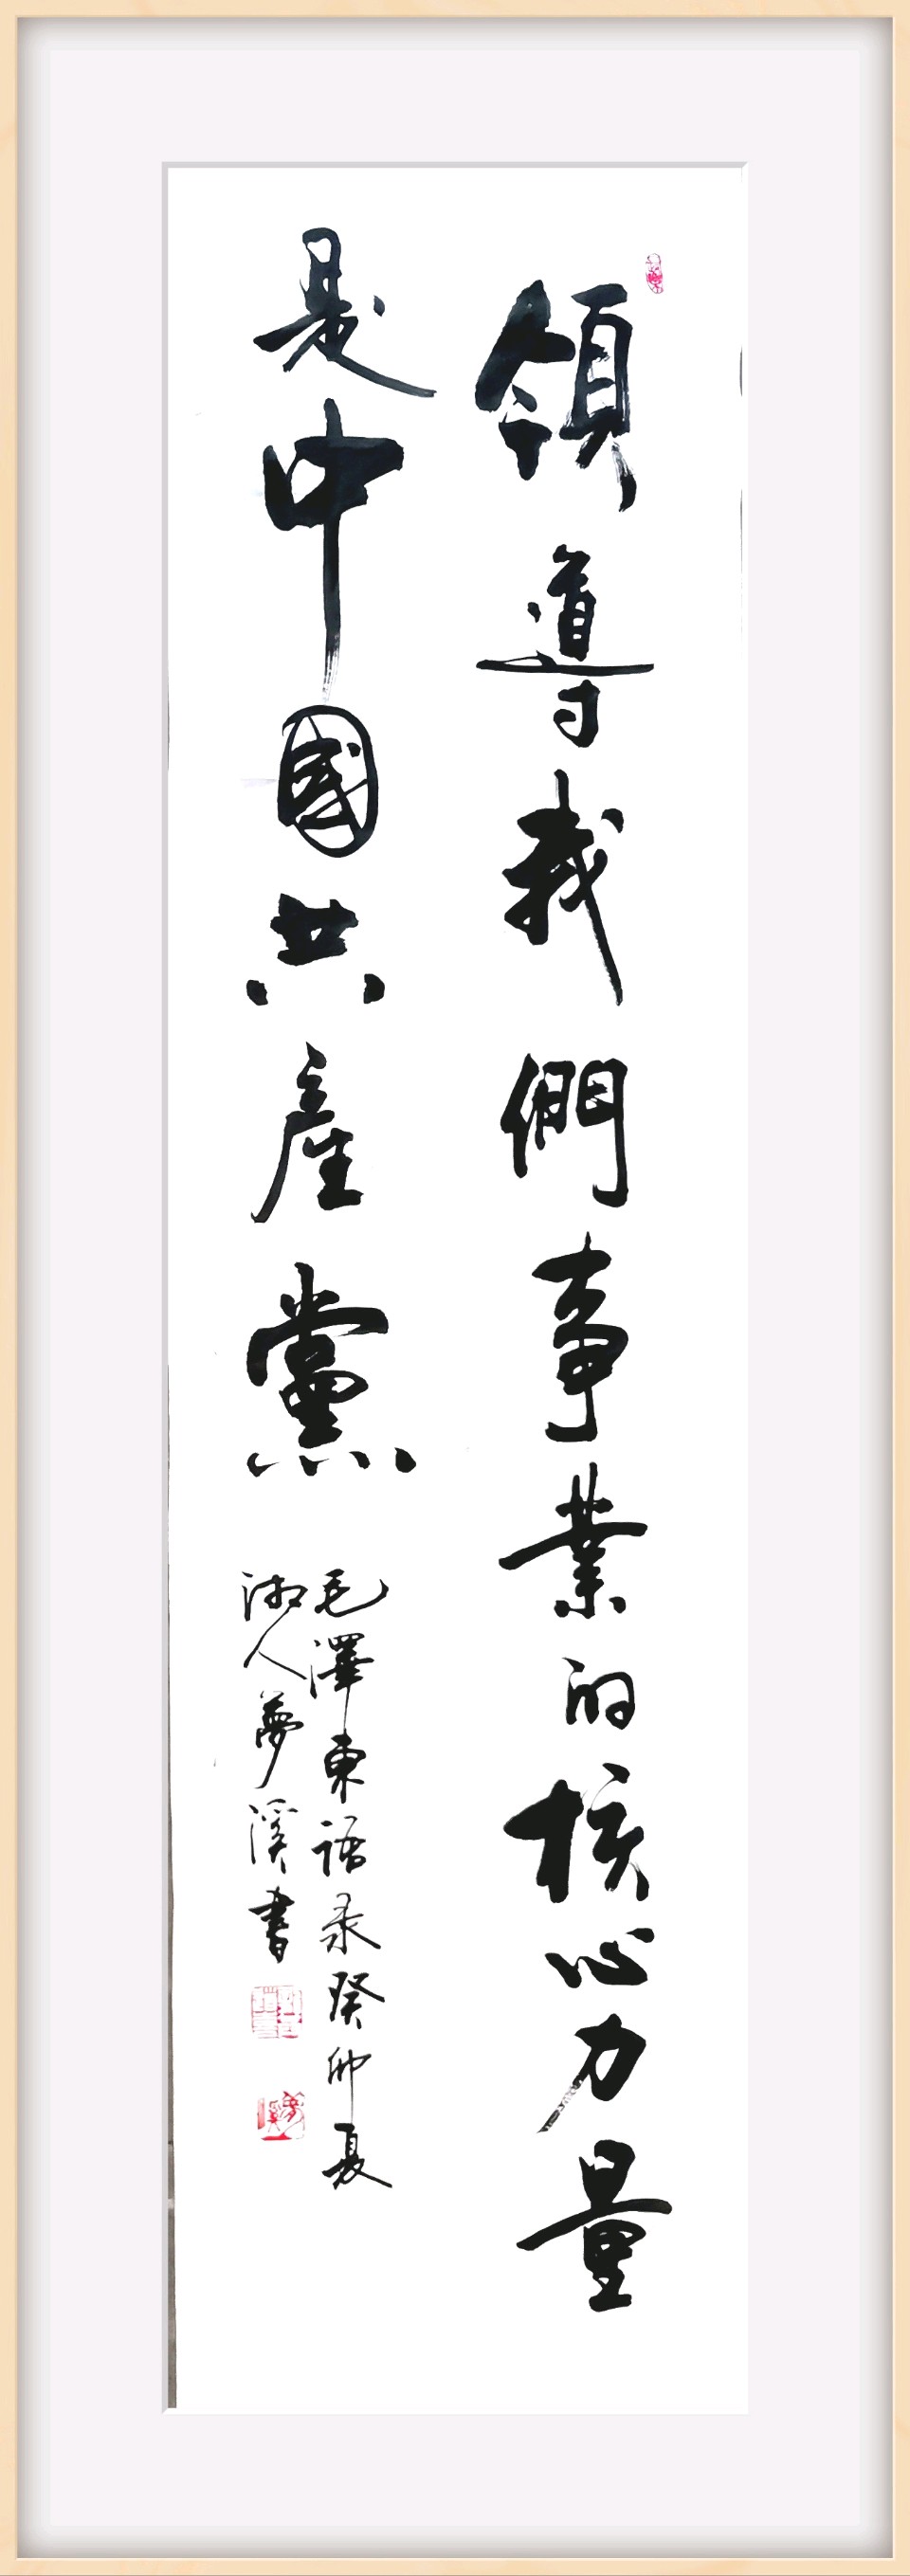 領導我們事業的核心力量
是中國共產黨
毛澤東語录癸卯夏
湖人夢溪書